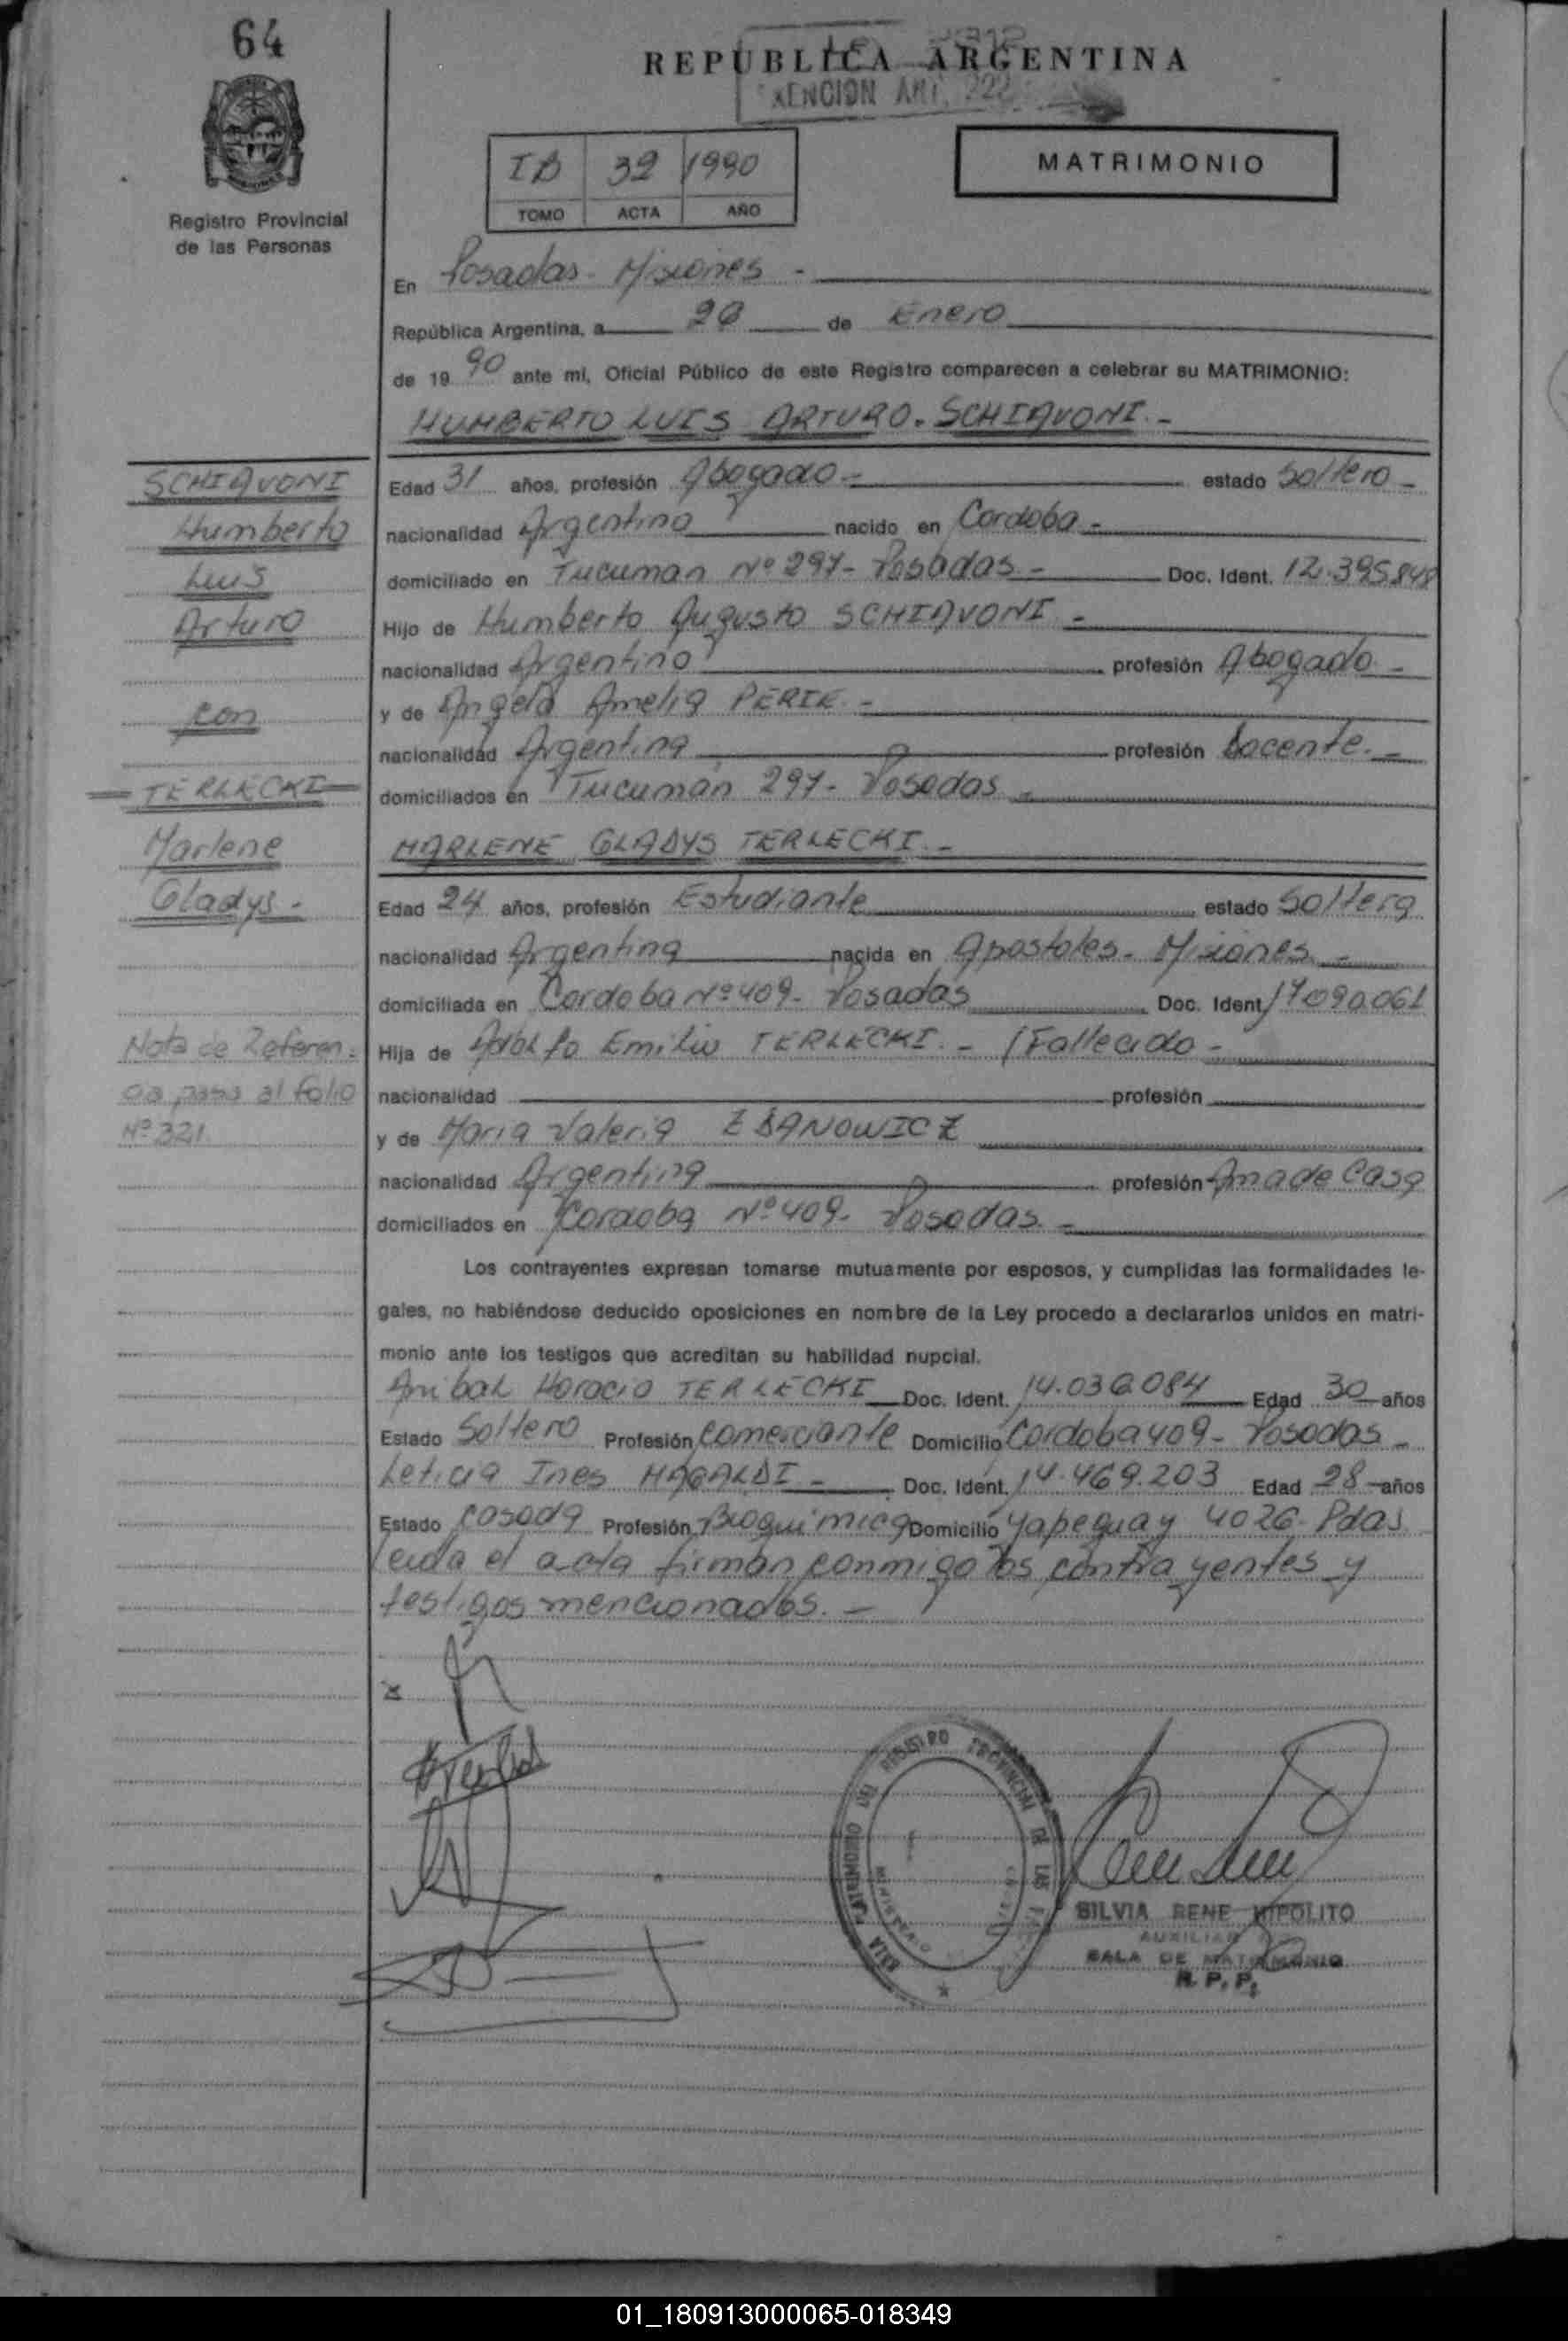 64
REPUBLICA ARGENTINA
MATRIMONIO
IB 32 1990
TOMO ACTA AÑO
Registro Provincial
de las Personas
En Posadas - Misiones -
República Argentina, a de Enero
de 19 90 ante mi, Oficial Público de este Registro comparecen a celebrar su MATRIMONIO:
HUMBERTO LUIS ARTURO. SCHIAVONI. -
SCHIAVONI
Humberto
Luis
Arturo
con
TERLECKI
Marlene
Gladys -
Nota de Referen-
cia pasa al folio
Nº 321.
Edad 31 años, profesión Abogado - estado Soltero -
nacionalidad Argentino nacido en Cordoba -
domiciliado en Tucuman Nº 297 - Posadas - Doc. Ident. 12.395.848
Hijo de Humberto Augusto SCHIAVONI -
nacionalidad Argentino profesión Abogado -
y de Angela Amelia PERIE. -
nacionalidad Argentina profesión Docente. -
domiciliados en Tucumán 297 - Posadas -
MARLENE GLADYS TERLECKI. -
Edad 24 años, profesión Estudiante estado Soltera
nacionalidad Argentina nacida en Apostoles - Misiones -
domiciliada en Cordoba Nº 409 - Posadas Doc. Ident 17090.061
Hija de Adolfo Emilio TERLECKI. - (Fallecido -
nacionalidad profesión
y de Maria Valeria ZDANOWICZ
nacionalidad Argentina profesión Ama de Casa
domiciliados en Cordoba Nº 409 - Posadas. -
Los contrayentes expresan tomarse mutuamente por esposos, y cumplidas las formalidades le-
gales, no habiéndose deducido oposiciones en nombre de la Ley procedo a declararlos unidos en matri-
monio ante los testigos que acreditan su habilidad nupcial.
Anibal Horacio TERLECKI Doc. Ident. 14.036.084 Edad 30 años
Estado Soltero Profesión Comerciante Domicilio Cordoba 409 - Posadas -
Leticia Ines MAGALDI - Doc. Ident. 14.469.203 Edad 28 años
Estado casada Profesión Bioquimica Domicilio Yapeguay 4026 - Pdas
Leida el acta firman conmigo los contrayentes y
testigos mencionados. -
SILVIA RENE HIPOLITO
AUXILIAR
SALA DE MATRIMONIO
R. P. P.
01_180913000065-018349